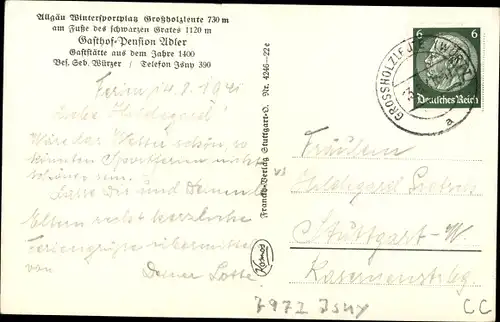 Allgäu Wintersportplatz Großholzleute 730 m
am Fuße des schwarzen Grates 1120 m
Gasthof-Pension Adler
Gaststätte aus dem Jahre 1400
Bes. Seb. Würzer / Telefon Isny 390
14.8.1941
Liebe Hildegard!
Wäre das Wetter schön, so
könnten Sportferien nicht
schöner sein.
Lasse Dir und Deinen lb.
Eltern recht herzliche
Feriengrüße übermitteln
von Deiner Lotte.
Franckh-Verlag Stuttgart-O. Nr. 4246-22e
Kosmos
6 6
Deutsches Reich
GROSSHOLZLEUTE (WÜRTT)
a
Fräulein
Hildegard
Stuttgart-W.
Kasernenstr.
7972 Isny
CC